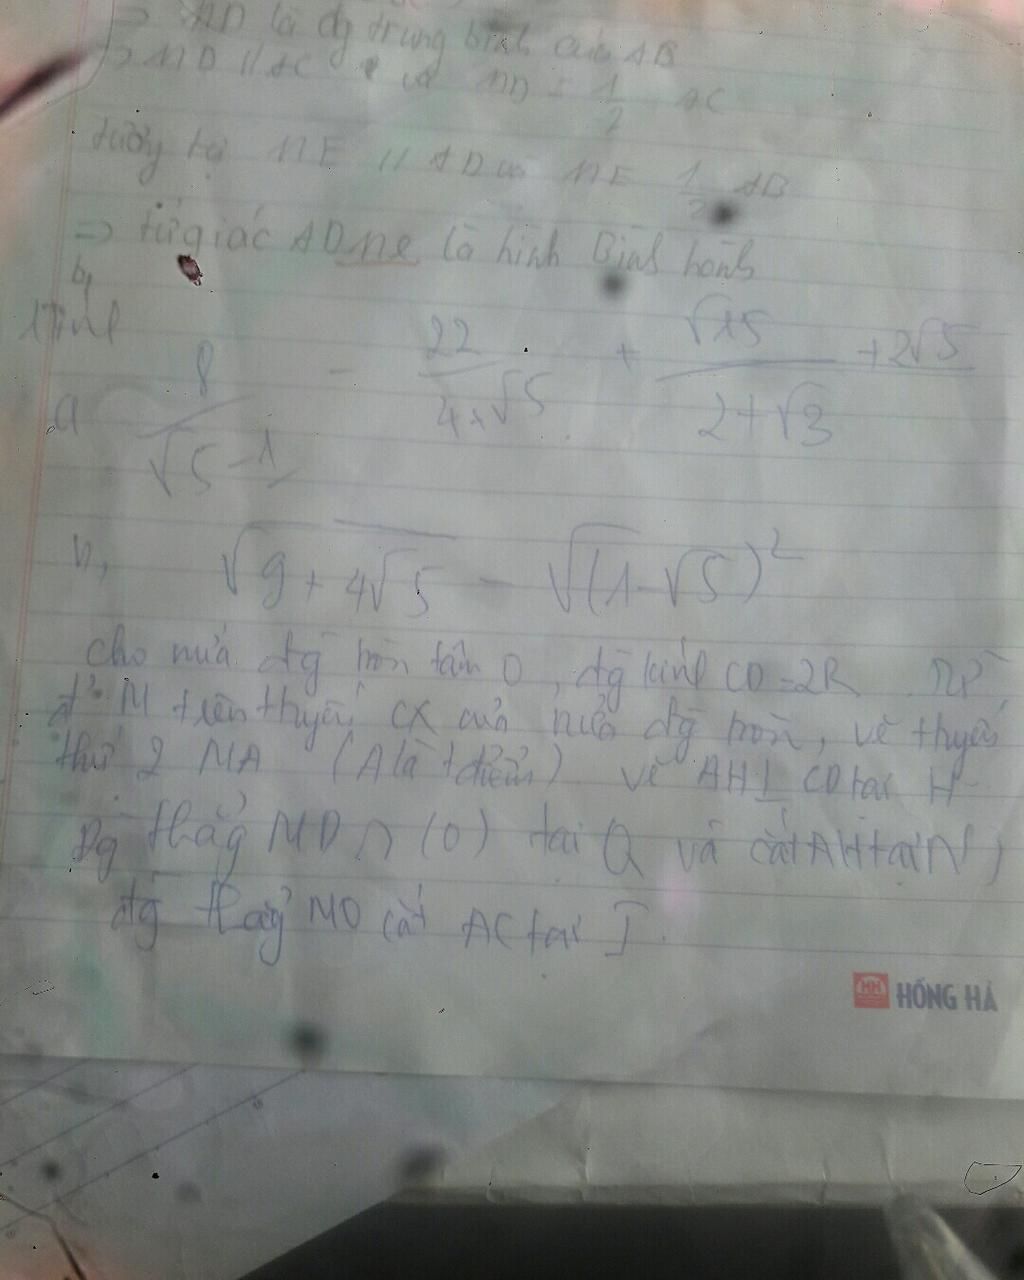 ⇒ MD là đg trung bình của AB
⇒ MD // AC và MD = 1/2 AC
tương tự ME // AD và ME 1/2 AB
⇒ tứ giác ADME là hình Bình hành
b,
tính
a 8/(√5 - 1) - 22/(4+√5) + (√15 + 2√5)/(2+√3)
b, √(9 + 4√5) - √((1-√5)²)
cho nửa đg tròn tâm O, đg kính CD = 2R
đ' M trên t tuyến CX của nửa đg tròn, vẽ t tuyến
thứ 2 MA (A là t điểm) vẽ AH ⊥ CD tại H
Đg thẳng MD ∩ (O) tại Q và cắt AH tại N,
đg thẳng MO cắt AC tại I.
HH HỒNG HÀ